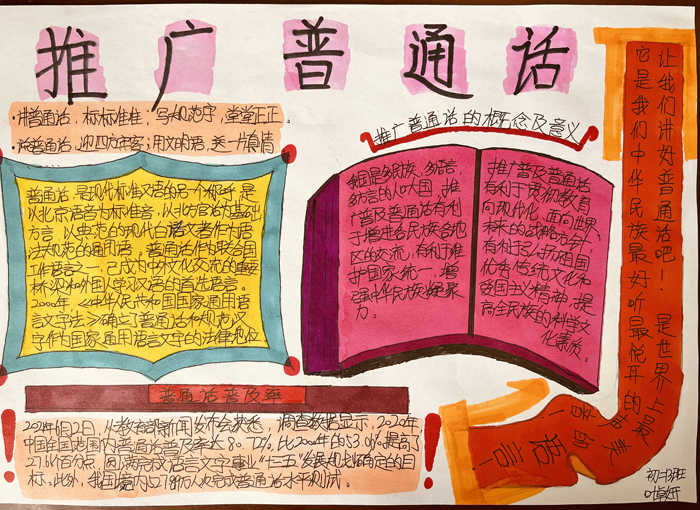 推广普通话
讲普通话，标标准准；写规范字，堂堂正正。
说普通话，迎四方宾客；用文明语，送一片真情
普通话，是现代标准汉语的另一个称呼，是
以北京语音为标准音，以北方官话为基础
方言，以典范的现代白话文著作为语
法规范的通用语。普通话作为联合国
工作语言之一，已成为中外文化交流的重要
桥梁和外国人学习汉语的首选语言。
2000年，《中华人民共和国国家通用语
言文字法》确立了普通话和规范汉
字作为国家通用语言文字的法律地位
推广普通话的概念及意义
我国是多民族、多语言、
多方言的人口大国，推
广普及普通话有利
于增进各民族各地
区的交流，有利于维
护国家统一，增
强中华民族凝聚
力。
推广普及普通话
有利于贯彻教育
向现代化，面向世界，
未来的战略方针
有利于弘扬祖国
优秀传统文化和
爱国主义精神，提
高全民族的科学文
化素质。
普通话普及率
2021年6月2日，从教育部新闻发布会获悉，调查数据显示，2020年
中国全国范围内普通话普及率达80.72%，比2000年的53.06%提高了
27.66个百分点，圆满完成语言文字事业“十三五”发展规划确定的目
标。此外，我国境内
普通话水平测试。
让我们讲好普通话吧！ 是世界上最美
它是我们中华民族最好听最悦耳的声音！
的语言！